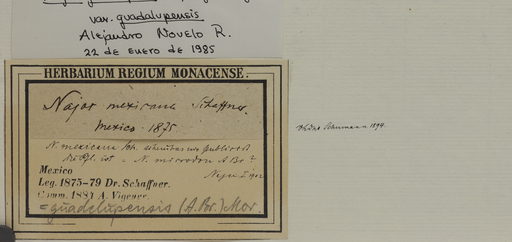 var. guadalupensis
Alejandro Novelo R.
22 de enero de 1985
HERBARIUM REGIUM MONACENSE.
Najas mexicana Schaffner.
Mexico 1875
N. mexicana Sch.
ist = N. microdon A Br?
Mexico
Leg. 1875-79 Dr. Schaffner.
Comm. 1881 A. Vigener.
= guadelupensis (A. Br.) Mor.
vidit Schumann 1894.